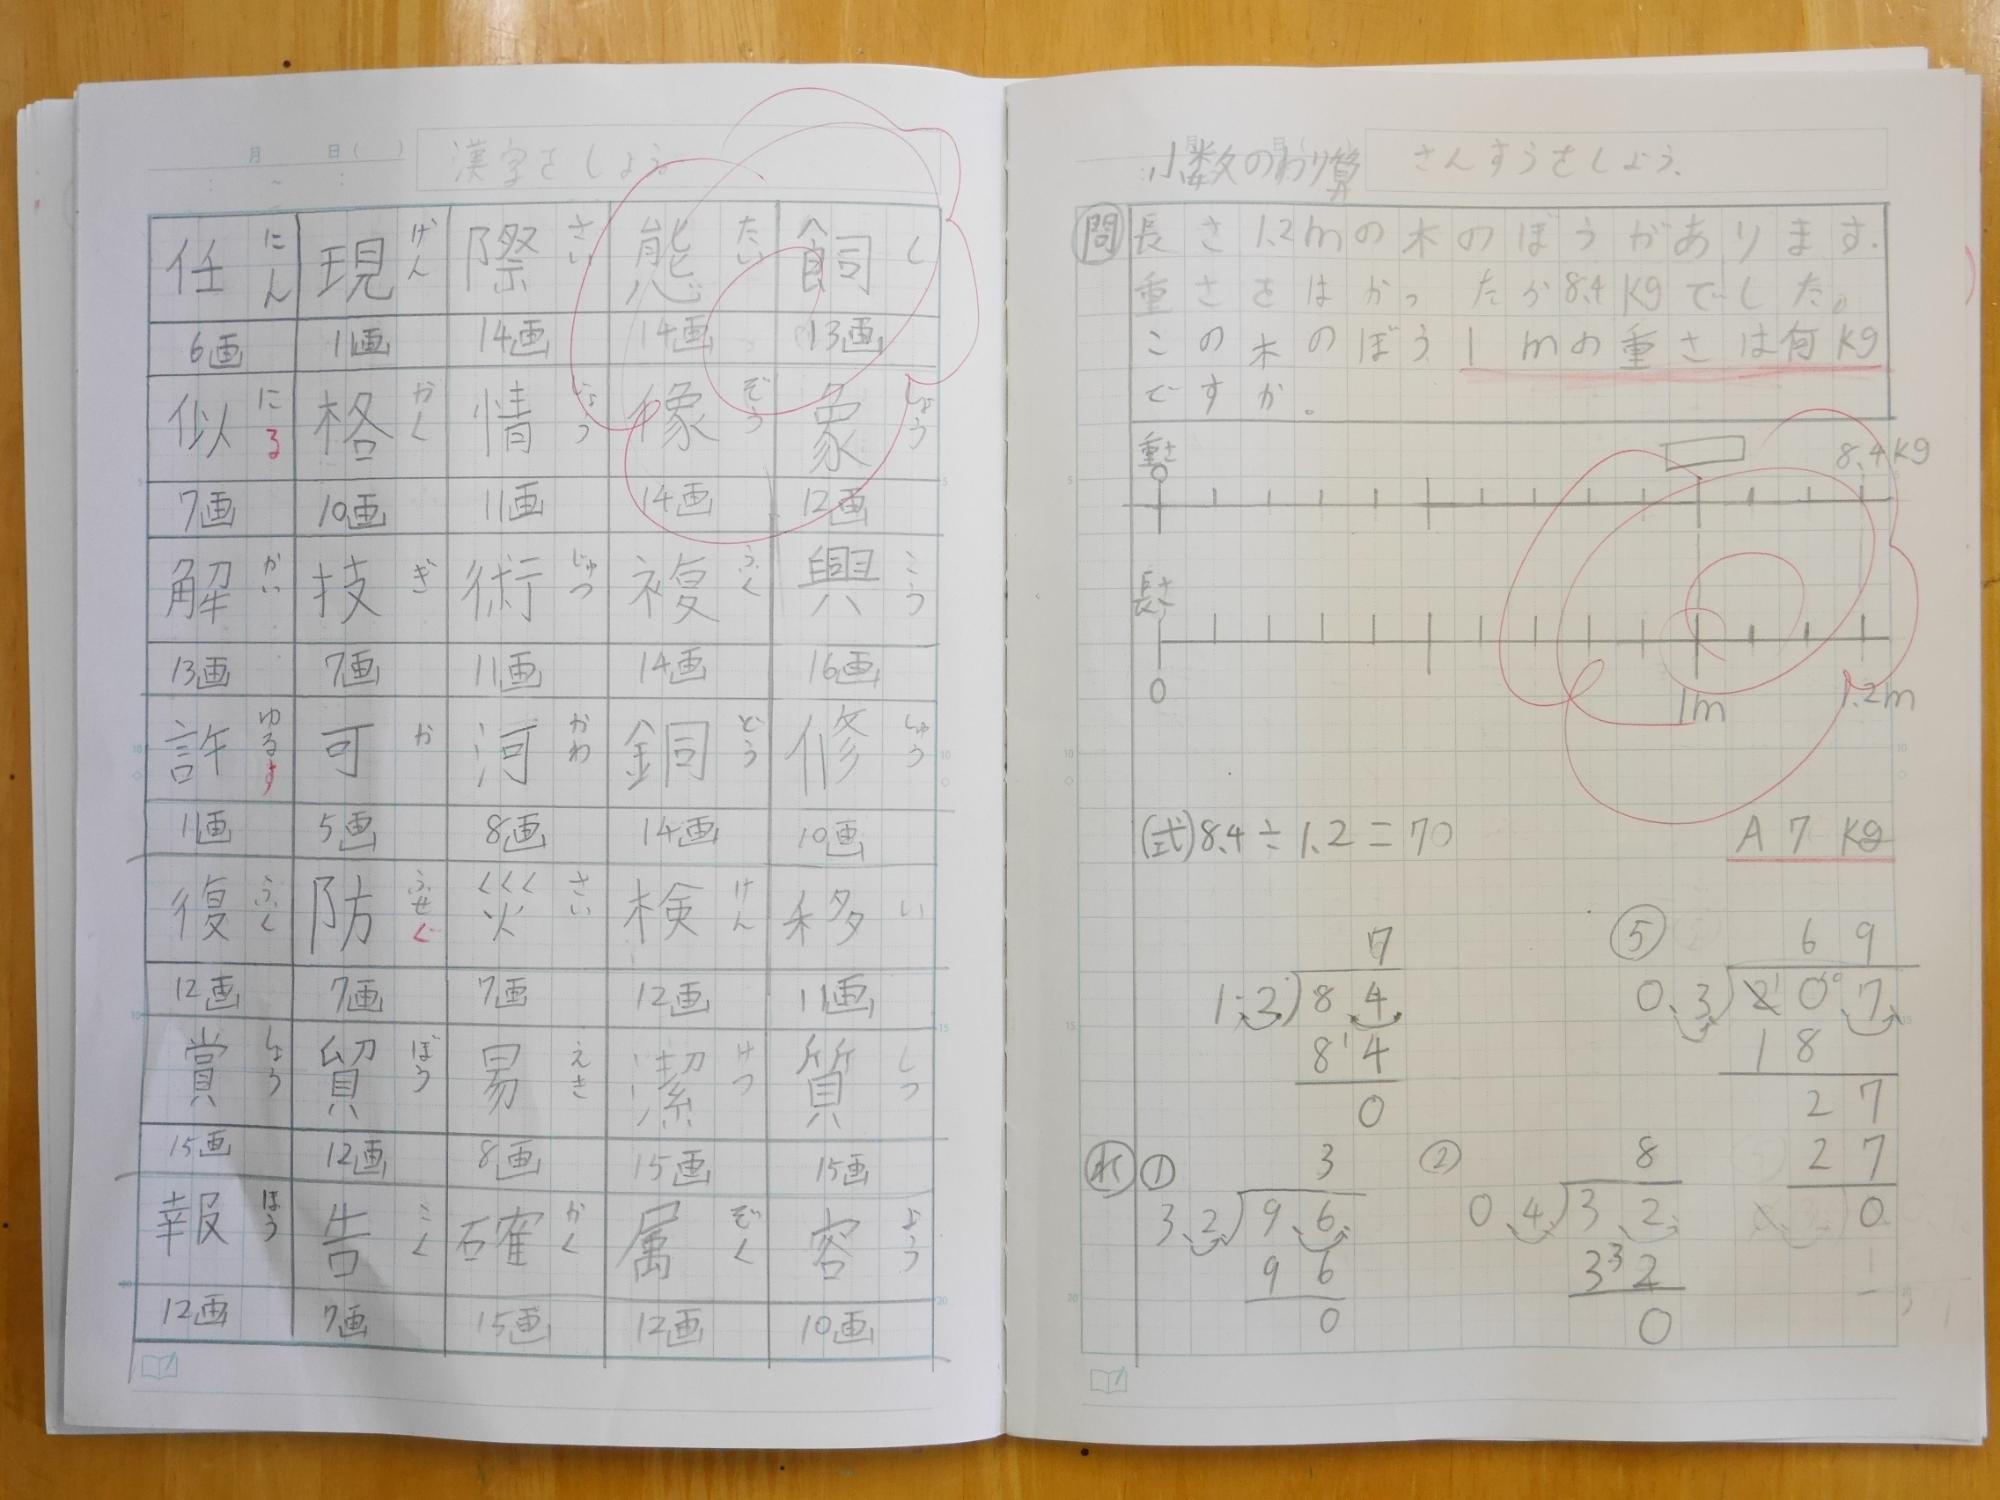 月 日( )
漢字をしよう
飼 し
13画
象 しょう
12画
興 こう
16画
修 しゅう
10画
移 い
11画
質 しつ
15画
容 よう
10画
態 たい
14画
像 ぞう
14画
複 ふく
14画
銅 どう
14画
検 けん
12画
潔 けつ
15画
属 ぞく
12画
際 さい
14画
情 じょう
11画
術 じゅつ
11画
河 かわ
8画
災 さい
7画
易 えき
8画
確 かく
15画
現 げん
11画
格 かく
10画
技 ぎ
7画
可 か
5画
防 ふせぐ
7画
貿 ぼう
12画
告 こく
7画
任 にん
6画
似 にる
7画
解 かい
13画
許 ゆるす
11画
復 ふく
12画
賞 しょう
15画
報 ほう
12画
小数のわり算 さんすうをしよう.
問 長さ1.2mの木のぼうがあります.
重さをはかったか8.4kgでした。
この木のぼう1mの重さは何kg
ですか。
重さ
0 8.4kg
長さ
0 1m 1.2m
(式)8.4÷1.2=70 A 7kg
7
1.2)8 4
8 4
0
⑤ 6 9
0.3)2 0 7
1 8
2 7
2 7
0
れ ① 3
3.2)9.6
9 6
0
② 8
0.4)3.2
3 2
0